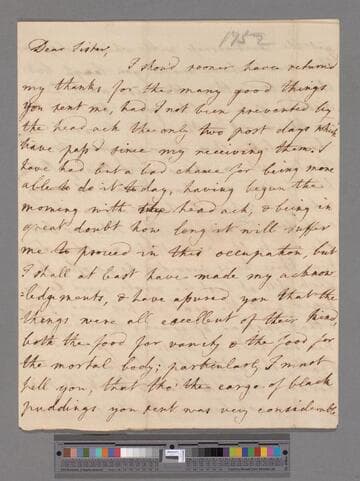 1752
Dear Sister,
I shou'd sooner have return'd
my thanks for the many good things
you sent me, had I not been prevented by
the head ach the only two post days which
have pass'd since my receiving them. I
have had but a bad chance for being more
able to do it to day, having begun the
morning with the head ach, & being in
great doubt how long it will suffer
me to proceed in this occupation, but
I shall at least have made my acknow
=ledgements, & have assured you that the
things were all excellent of their kind,
both the food for vanity & the food for
the mortal body; particularly I must
tell you, that tho' the cargo of black
puddings you sent was very considerable,